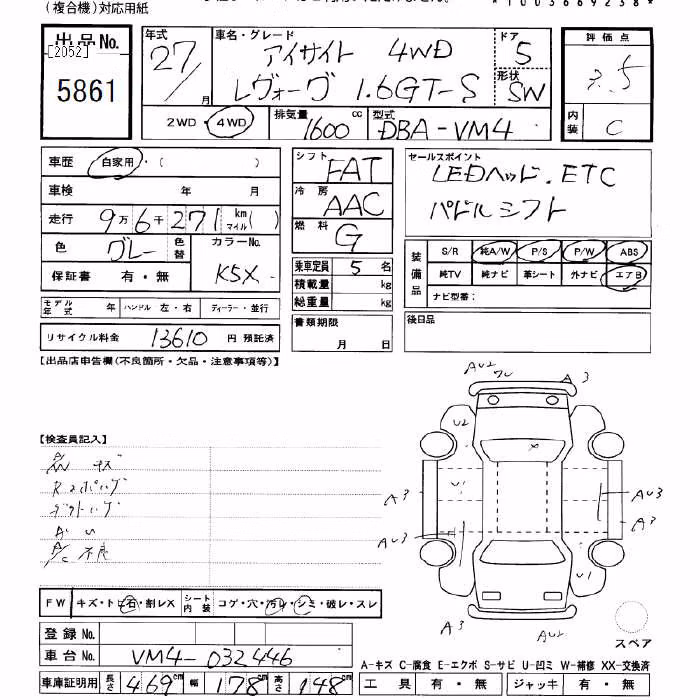 (複合機)対応用紙
*1003669238*
出品No.
[2052]
5861
年式 27/ 月
車名・グレード アイサイト 4WD
レヴォーグ 1.6GT-S
ドア 5
形状 SW
2WD・4WD
排気量 1600 cc
型式 DBA-VM4
評価点 3.5
内装 C
車歴 自家用・( )
車検 年 月
走行 9万6千271 km マイル ( )
色 グレー 色替
カラーNo. K5X
保証書 有・無
モデル年式 年 ハンドル 左・右 ディーラー・並行
リサイクル料金 13610 円 預託済
シフト FAT
冷房 AAC
燃料 G
乗車定員 5 名
積載量 kg
総重量 kg
書類期限 月 日
セールスポイント
LEDヘッド.ETC
パドルシフト
装備品 S/R 純A/W P/S P/W ABS
純TV 純ナビ 革シート 外ナビ エアB
ナビ型番:
後日品
【出品店申告欄(不良箇所・欠品・注意事項等)】
【検査員記入】
キズ
不良
AU2
A3
U2
U
A3
AU3
A3
AU3
U1
A3
AU2
スペア
FW キズ・トビ石・割レX シート内装 コゲ・穴・汚レ・シミ・破レ・スレ
登録No.
車台No. VM4-032446
車庫証明用 長さ 469cm 幅 178cm 高さ 148cm
A-キズ C-腐食 E-エクボ S-サビ U-凹ミ W-補修 XX-交換済
工具 有・無 ジャッキ 有・無